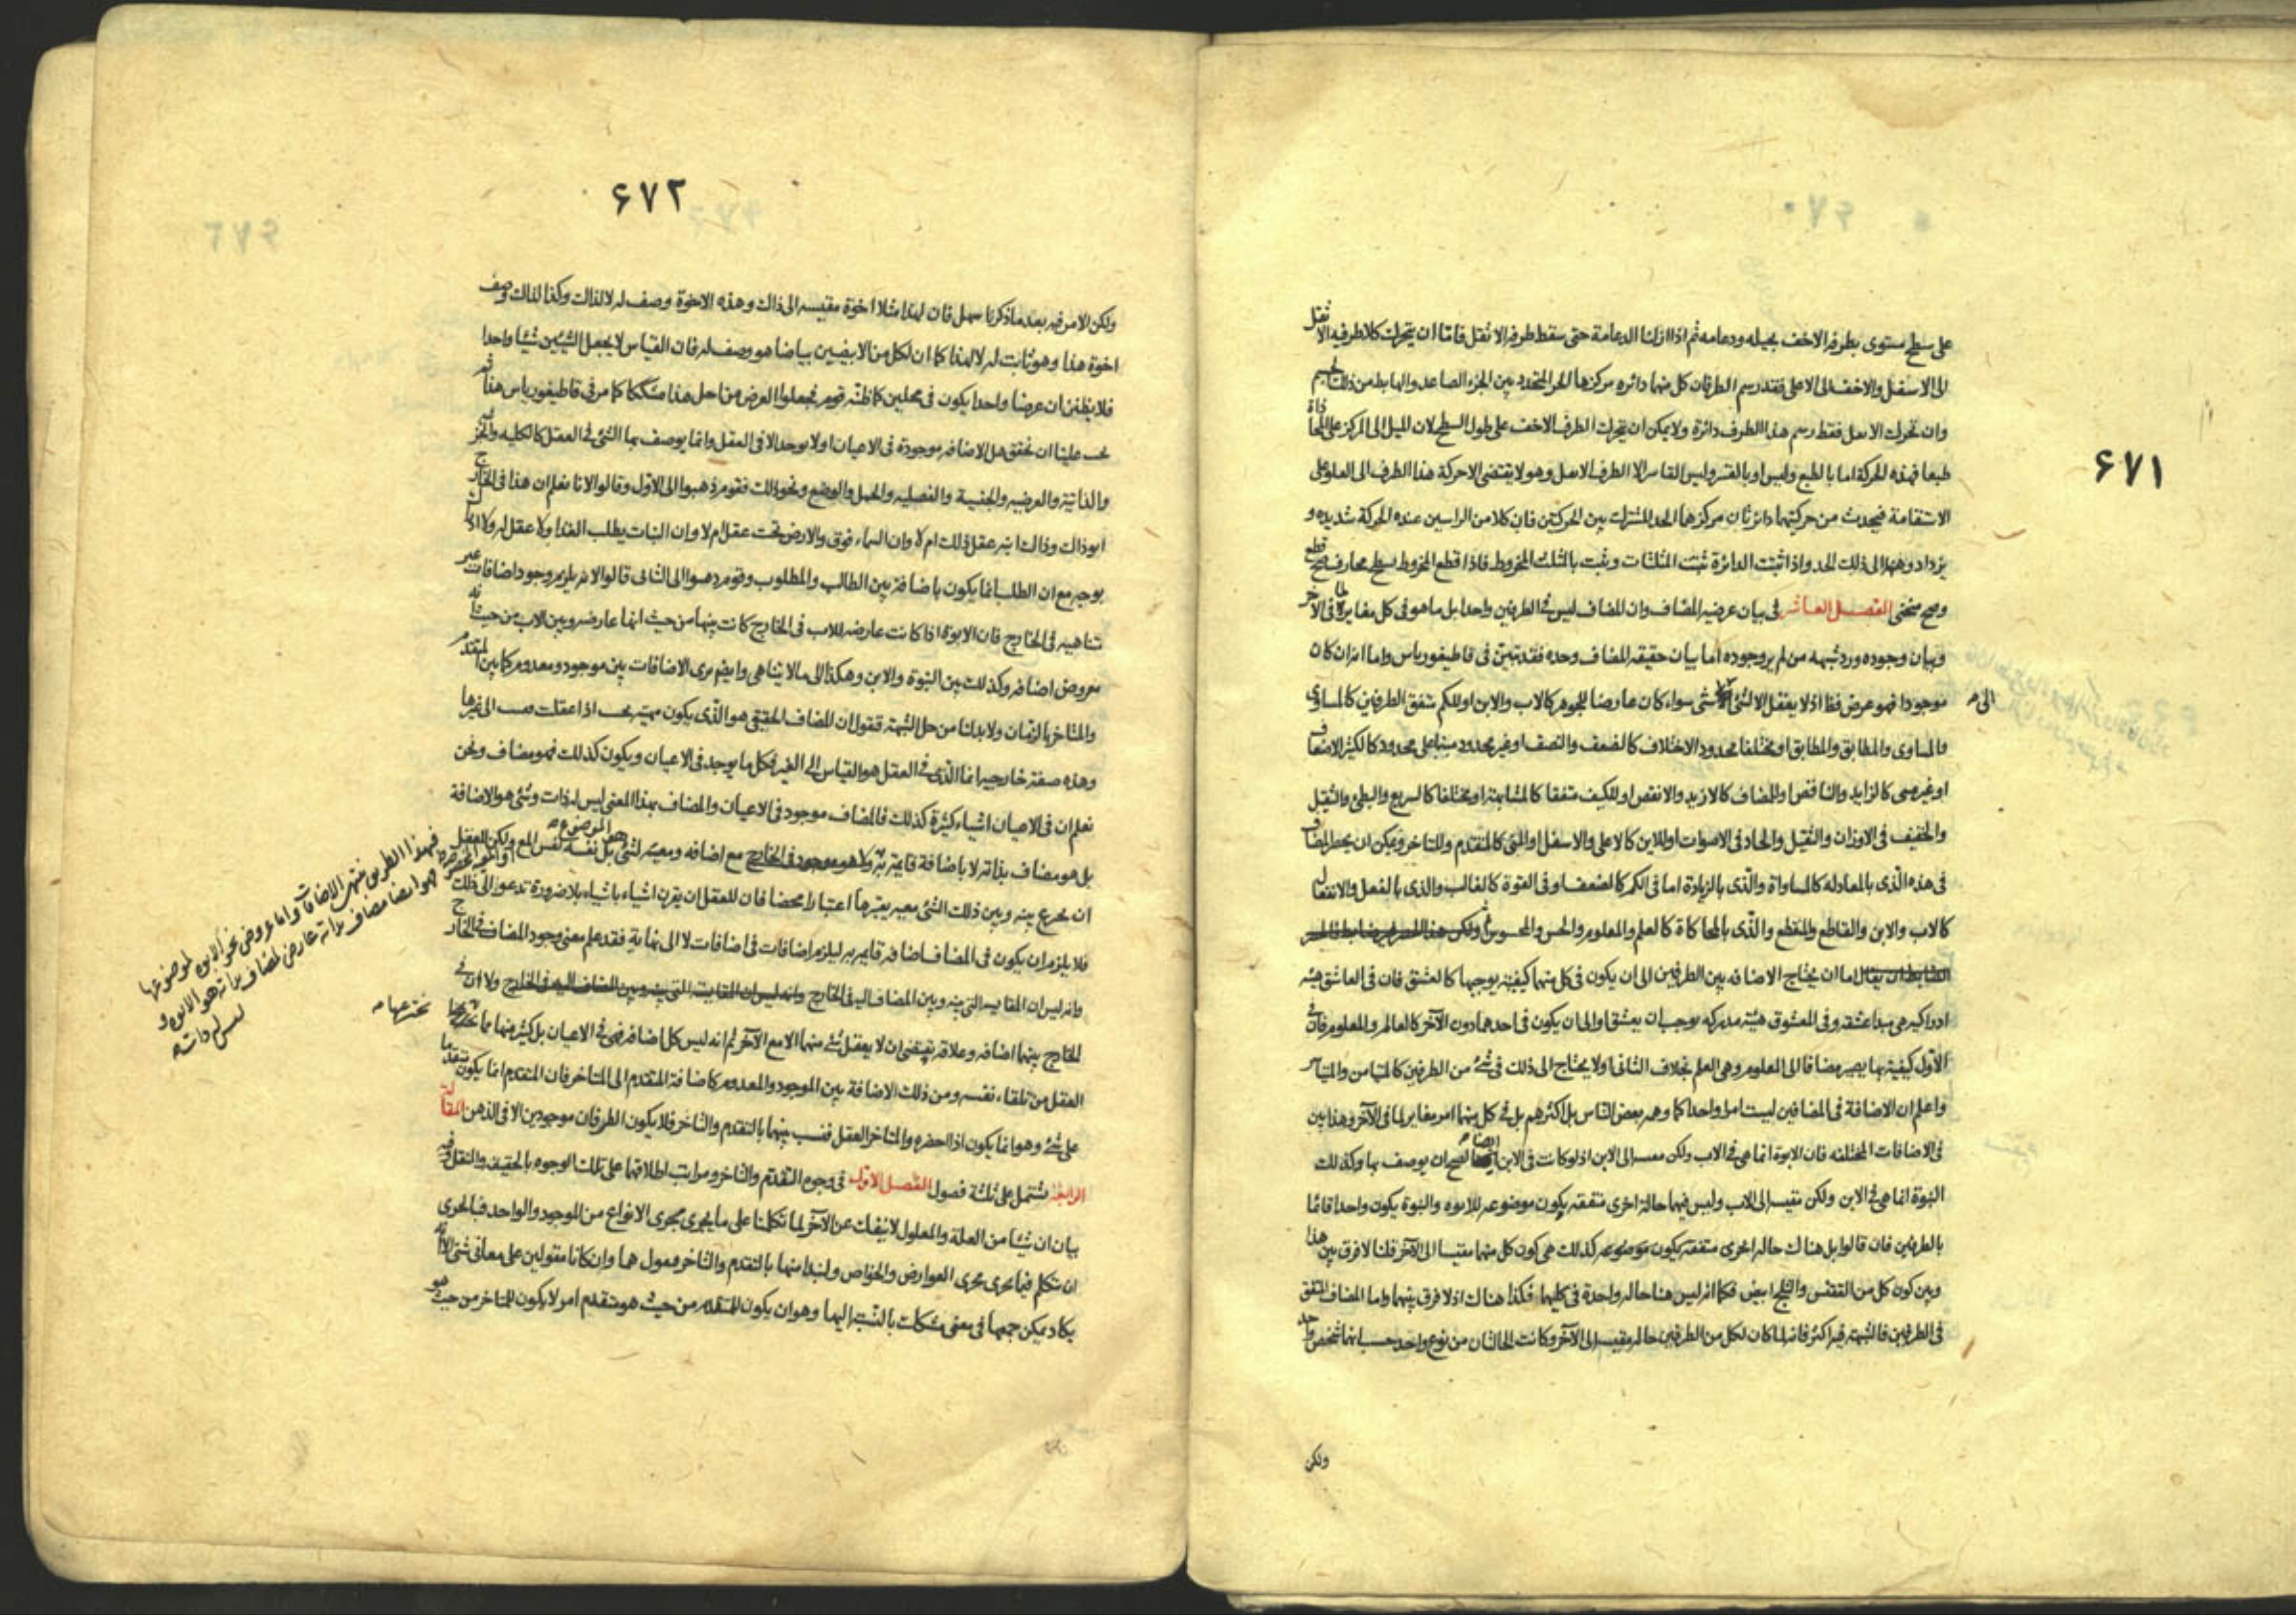 ٦٧١
على سطح مستوى بطرفه الاخف بحيله ودعامه ثم اذا ازلنا الدعامة حتى سقط طرفه الاثقل فاما ان يتحرك كلا طرفيه الاثقل
الى الاسفل والاخف الى الاعلى فقد رسم الطرفان كل منهما دائره مركزها الحد المتحدد بين الجزء الصاعد والهابط من ذلك الجسم
وان تحرك الاثقل فقط رسم هذا الطرف دائرة ولا يمكن ان يتحرك الطرف الاخف على طول السطح لان الميل الى المركز على المحاذاة
طبعا فهذه الحركة اما بالطبع وليس او بالقسر وليس القاسر الا الطرف الاثقل وهو لا يقتضى الا حركة هذا الطرف الى العلو على
الاستقامة فيحدث من حركتيهما دائرتان مركزهما الحد المشترك بين الحركتين فان كلا من الراسين عنده الحركة شديده و
يزداد وهنها الى ذلك الحد واذا ثبتت الدائرة ثبتت المثلثات وثبت بالمثلث المخروط فاذا قطع المخروط بسطح محارف صح قطع
وصح منحنى الفصل العاشر فى بيان عرضيه المضاف وان المضاف ليس فى الطرفين واحدا بل ما هو فى كل مغاير لما فى الآخر
وبيان وجوده ورد شبهه من لم ير وجوده اما بيان حقيقه المضاف وحده فقد تبين فى قاطيغورياس واما انه ان كان
موجودا فهو عرض فظ اذ لا يعقل الا لشئ الى شئ سواء كان عارضا للجوهر كالاب والابن او للكم متفق الطرفين كالمساوى
والمساوى والمطابق والمطابق او مختلفا محدود الاختلاف كالضعف والنصف او غير محدود مبنيا على محدود كالكثير الاضعاف
او غير مبنى كالزايد والناقص او للمضاف كالازيد والانقص او للكيف متفقا كالمشابهة او مختلفا كالسريع والبطئ والثقيل
والخفيف فى الاوزان والثقيل والحاد فى الاصوات او للاين كالاعلى والاسفل او لمتى كالمتقدم والمتاخر ويمكن ان يحصر المضاف
فى هذه الذى بالمعادله كالمساواة والذى بالزيادة اما فى الكم كالضعف او فى القوة كالغالب والذى بالفعل والانفعال
كالاب والابن والقاطع والمنقطع والذى بالمحاكاة كالعلم والمعلوم والحس والمحسوس
اما ان يحتاج الاضافه بين الطرفين الى ان يكون فى كل منهما كيفيته يوجبها كالعشق فان فى العاشق هيئه
ادراكيه هى مبدا عشقه وفى المعشوق هيئة مدركه يوجب ان يعشق والى ان يكون فى احدهما دون الآخر كالعالم والمعلوم فان فى
الاول كيفية بها يصير مضافا الى المعلوم وهى العلم بخلاف الثانى او لا يحتاج الى ذلك فى شئ من الطرفين كالمتيامن والمتياسر
واعلم ان الاضافة فى المضافين ليست امرا واحدا كما وهمه بعض الناس بل اكثرهم بل فى كل منهما امر مغاير لما فى الآخر وهذا بين
فى الاضافات المختلفه فان الابوة انما هى فى الاب ولكن مقيسه الى الابن اذ لو كانت فى الابن ايضا لصح ان يوصف بها وكذلك
البنوة انما هى فى الابن ولكن مقيسه الى الاب وليس فيهما حالة اخرى متفقه يكون موضوعه للابوه والبنوة يكون واحدا قائما
بالطرفين فان قالوا بل هناك حاله اخرى متفقه يكون موضوعه كذلك هى كون كل منهما مقيسا الى الآخر قلنا لا فرق بين هذا
وبين كون كل من الققنس والثلج ابيض فكما انه ليس هنا حاله واحدة فى كليهما فكذا هناك اذ لا فرق بينهما واما المضاف المتفق
فى الطرفين فالشبهة فيه اكثر فانه لما كان لكل من الطرفين حاله مقيسه الى الآخر وكانت الحالتان من نوع واحد حسب انها شخص واحد
الى
ولكن
٦٧٢
ولكن الامر فيه بعد ما ذكرنا سهل فان لهذا مثلا اخوة مقيسه الى ذاك وهذه الاخوة وصف له لا لذاك وكذا لذاك وصف
اخوة هذا وهو ثابت له لا لهذا كما ان لكل من الابيضين بياضا هو وصف له فان القياس لا يجعل الشيئين شيئا واحدا
فلا يظنن ان عرضا واحدا يكون فى محلين كما ظنه قوم فجعلوا العرض من اجل هذا مشككا كما مر فى قاطيغورياس هذا ثم
يجب علينا ان نحقق هل الاضافه موجودة فى الاعيان او لا يوجد الا فى العقل وانما يوصف بها الشئ فى العقل كالكليه والجزئيه
والذاتية والعرضيه والجنسية والفصليه والحمل والوضع ونحو ذلك فقوم ذهبوا الى الاول وقالوا لانا نعلم ان هذا فى الخارج
ابو ذاك وذاك ابنه عقل ذلك ام لا وان السماء فوق والارض تحت عقل ام لا وان النبات يطلب الغذا ولا عقل له ولا
بوجه مع ان الطلب انما يكون باضافة بين الطالب والمطلوب وقوم ذهبوا الى الثانى قالوا لانه يلزم وجود اضافات غير
متناهيه فى الخارج فان الابوة اذا كانت عارضه للاب فى الخارج كانت بينها من حيث انها عارضه وبين الاب من حيث انه
معروض اضافه وكذلك بين البنوة والابن وهكذا الى ما لا يتناهى وايضا نرى الاضافات بين موجود ومعدوم كما بين المتقدم
والمتاخر بالزمان ولا بد لنا من حل الشبهة فنقول ان المضاف الحقيقى هو الذى يكون مهيته بحيث اذا عقلت الى غيرها
وهذه صفة خارجيه انما الذى فى العقل هو القياس الى الغير فكل ما يوجد فى الاعيان ويكون كذلك فهو مضاف ونحن
نعلم ان فى الاعيان اشياء كثيرة كذلك فالمضاف موجود فى الاعيان والمضاف بهذا المعنى ليس له ذات وشئ هو الاضافة
بل هو مضاف بذاته لا باضافة قايمة به مع اضافه ومعيته لشئ بل نفسه نفس المع ولكن للعقل
ان يخترع بينه وبين ذلك الشئ معيه يعتبرها اعتبارا محضا فان للعقل ان يقرن اشياء باشياء بلا ضرورة تدعو الى ذلك
فلا يلزم ان يكون فى المضاف اضافه قايمه به ليلزم اضافات فى اضافات لا الى نهاية فقد علم معنى وجود المضاف فى الخارج
وانه ليس ان المقايسه التى بينه وبين المضاف اليه فى الخارج ولا ان فى
الخارج بينهما اضافه وعلاقه يقتضى ان لا يعقل شئ منهما الا مع الآخر ثم انه ليس كل اضافه فهى فى الاعيان بل كثير منها مما يخترعها
العقل من تلقاء نفسه ومن ذلك الاضافة بين الموجود والمعدوم كاضافة المتقدم الى المتاخر فان المتقدم انما يكون متقدما
على شئ وهو انما يكون اذا احضره والمتاخر العقل فنسب بينهما بالتقدم والتاخر فلا يكون الطرفان موجودين الا فى الذهن المقالة
الرابعة تشتمل على ثلثة فصول الفصل الاول فى وجوه التقدم والتاخر ومراتب اطلاقهما على تلك الوجوه بالحقيقه والنقل وفيه
بيان ان شيئا من العلة والمعلول لا ينفك عن الآخر لما تكلمنا على ما يجرى مجرى الانواع من الموجود والواحد فبالحرى
ان نتكلم فيما يجرى مجرى العوارض والخواص ولنبدا منها بالتقدم والتاخر فنقول هما وان كانا مقولين على معانى شتى الا انه
يكاد يمكن جمعها فى معنى مشكك بالنسبة اليها وهو ان يكون للمتقدم من حيث هو متقدم امر لا يكون للمتاخر من حيث هو
فهذا الطريق ينتهى الاضافات واما عروض نحو الابوه لموضوعها
فهو ايضا مضاف بذاته عارض لمضاف بذاته هو الابوه و
ليس له ذات
نخترعها